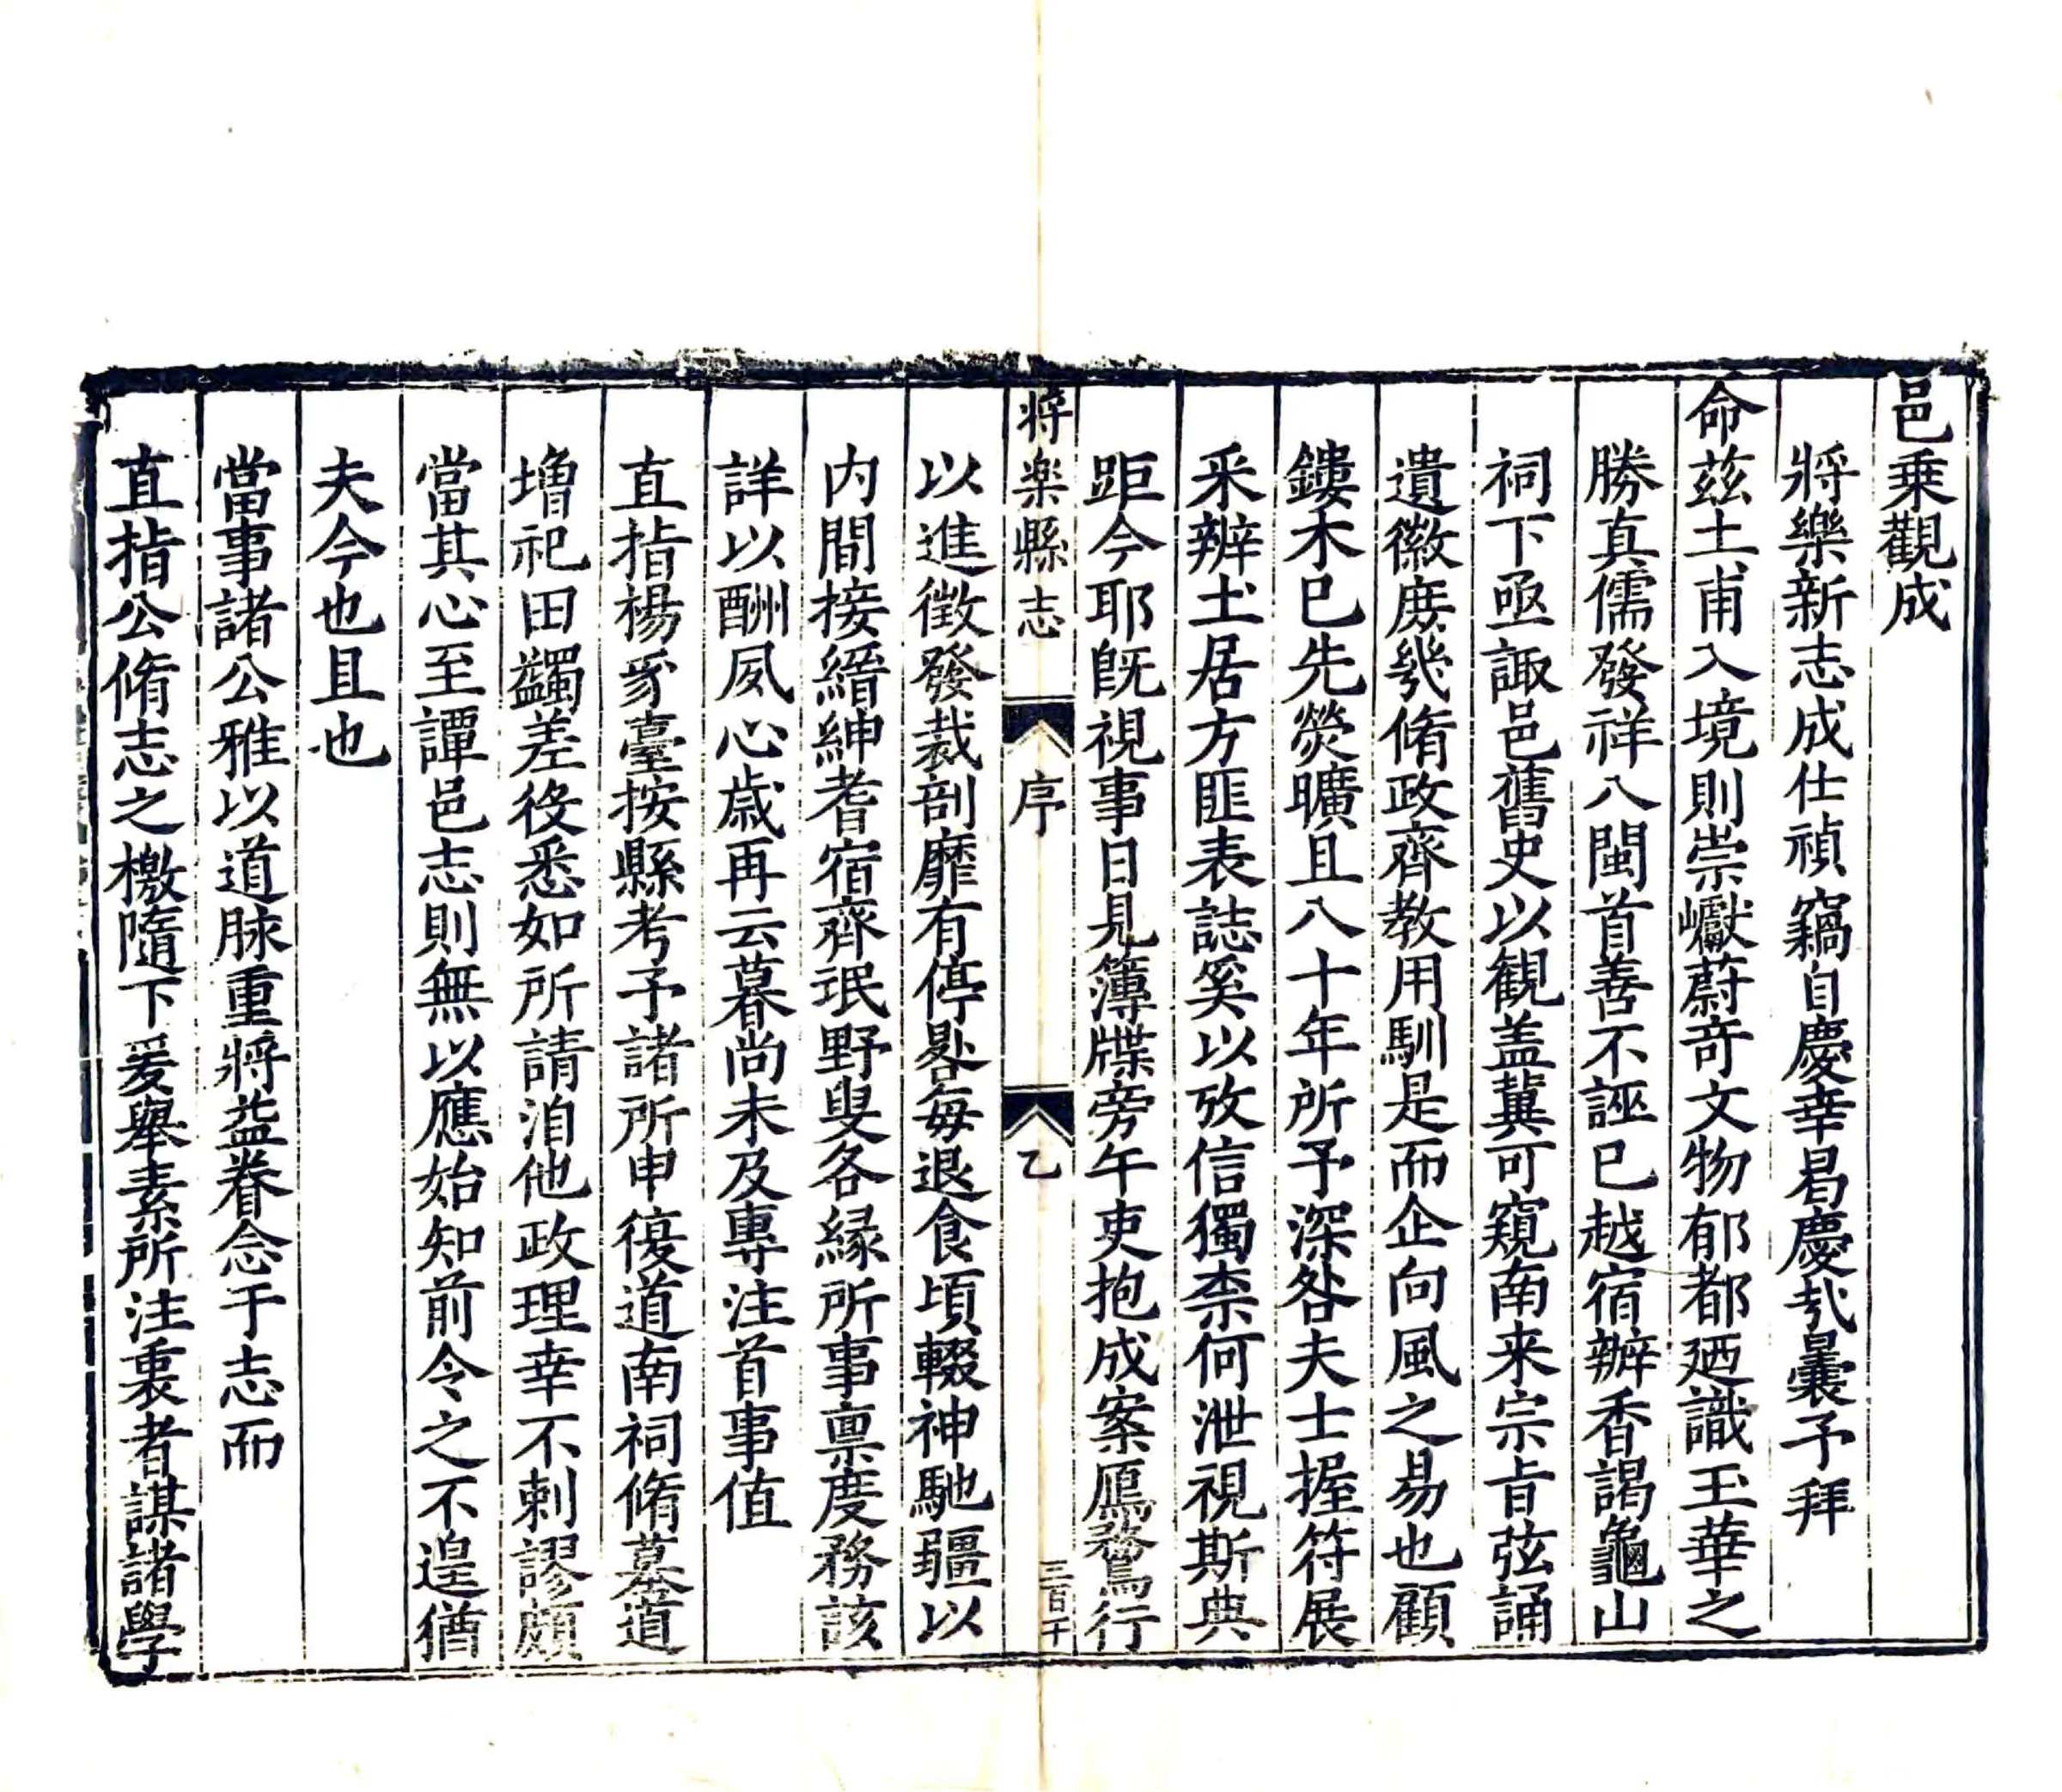 邑乗觀成
將樂新志成仕禎竊自慶幸曷慶㢤曩予拜
命兹土甫入境則崇巘蔚竒文物郁都廼識玉華之
勝真儒發祥八閩首善不誣已越宿辦香謁龜山
祠下亟諏邑舊史以観盖冀可窺南来宗旨弦誦
遺徽庻㡬脩政齊教用馴是而企向風之易也顧
鏤木已先熒曠且八十年所予深咎夫士握符展
釆辨土居方匪表誌奚以攷信獨柰何泄視斯典
距今耶旣視事日見簿牒旁午吏抱成案鴈鶩行
將楽縣志 序 乙 三百十
以進徵發裁剖靡有停晷每退食頃輟神馳疆以
内間接縉紳耆宿齊珉野叟各緣所事禀度務該
詳以酬夙心歲再云暮尚未及專注首事值
直指楊豸臺按縣考予諸所申復道南祠脩墓道
增祀田蠲差役悉如所請洎他政理幸不剌謬頗
當其心至譚邑志則無以應始知前令之不遑猶
夫今也且也
當事諸公雅以道脉重將益眷念于志而
直指公脩志之檄隨下爰舉素所注裏者謀諸學